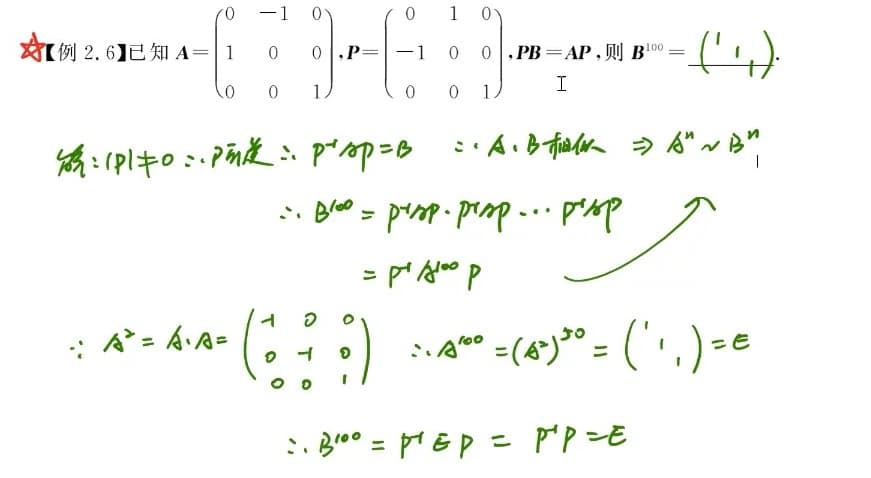 【例 2.6】已知 A=(0 −1 0; 1 0 0; 0 0 1), P=(0 1 0; −1 0 0; 0 0 1), PB=AP, 则 B¹⁰⁰= (1 1 1).
解: |P|≠0 ∴ P可逆 ∴ P⁻¹AP=B ∴ A、B相似 ⇒ Aⁿ ~ Bⁿ
∴ B¹⁰⁰ = P⁻¹AP · P⁻¹AP ··· P⁻¹AP
= P⁻¹A¹⁰⁰P
∵ A² = A·A= (-1 0 0; 0 -1 0; 0 0 1) ∴ A¹⁰⁰ = (A²)⁵⁰ = (1 1 1) = E
∴ B¹⁰⁰ = P⁻¹EP = P⁻¹P = E